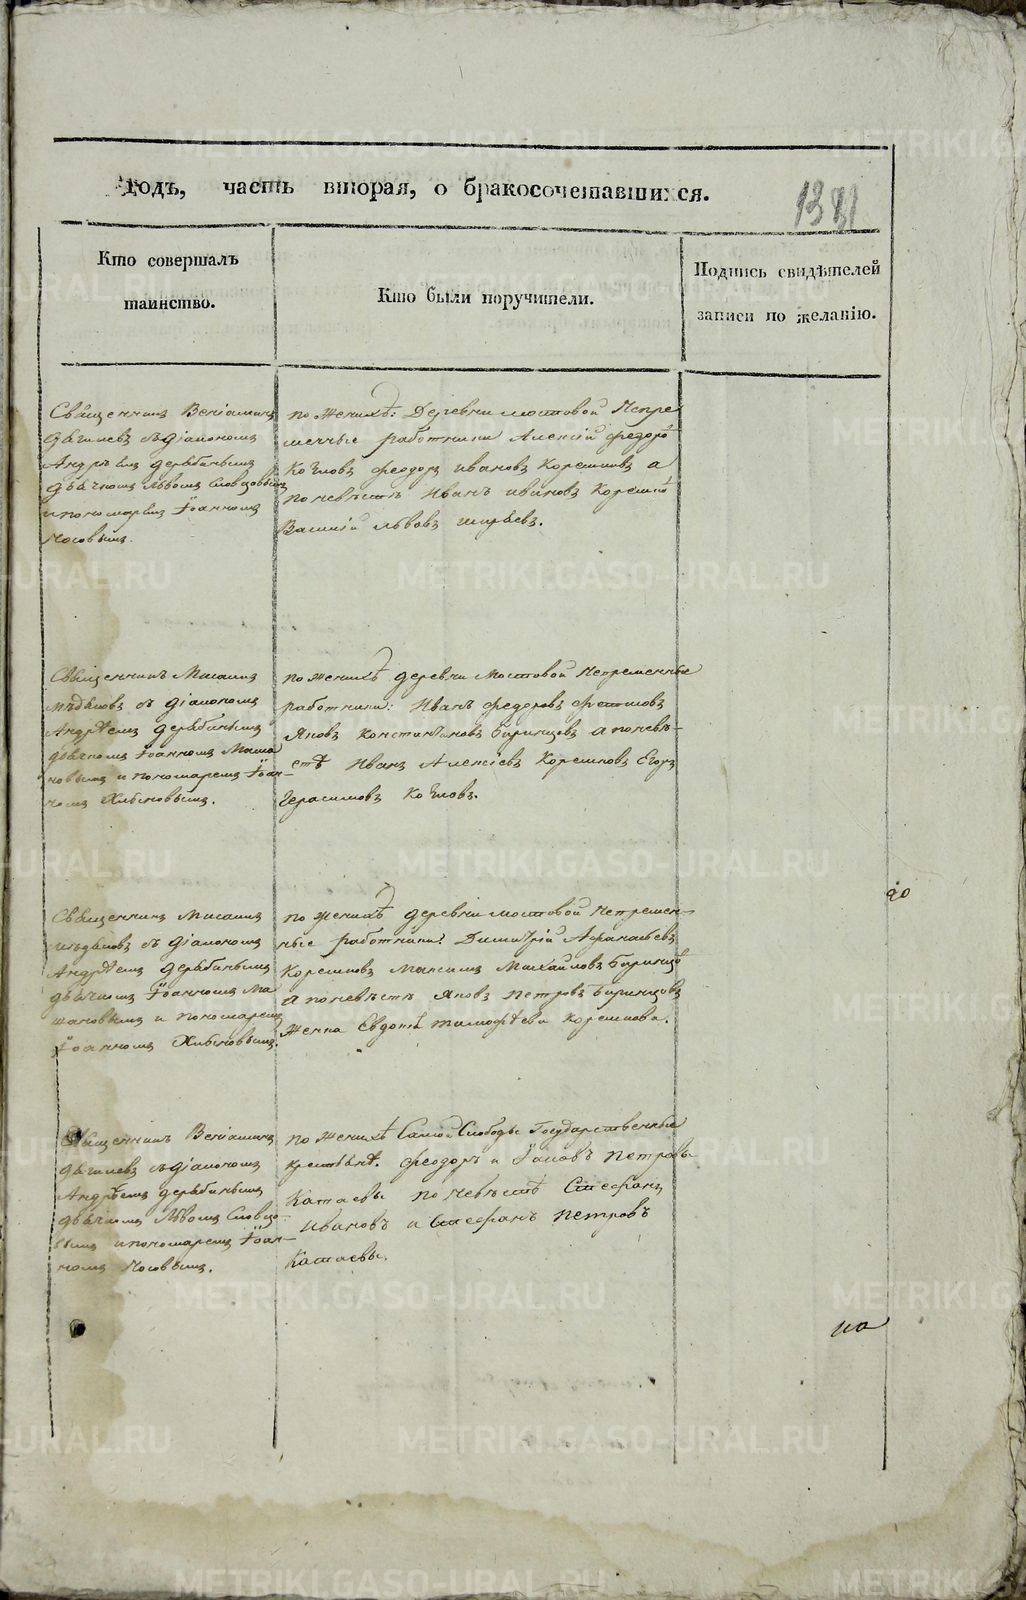 годъ, часть вторая, о бракосочетавшихся.
1381
Кто совершалъ
таинство.
Кто были поручители.
Подпись свидѣтелей
записи по желанію.
Священникъ Веніаминъ
съ діакономъ
Андрѣемъ Дерябинымъ
дьячкомъ Львомъ Словцовымъ
и пономаремъ Іоанномъ
Носовымъ.
по женихѣ: Деревни Мостовой Непре
менные работники Алексѣй Федоро
Козловъ Феодоръ Ивановъ Корешковъ а
по невѣстѣ Иванъ Ивановъ Корешко
Василій Львовъ Ширяевъ.
Священникъ Мисаилъ
Мѣдьковъ съ діакономъ
Андрѣемъ Дерябинымъ
дьячкомъ Іоанномъ Мама
новымъ и пономаремъ Іоан-
номъ Хлыновымъ.
по женихѣ деревни Мостовой Непременные
работники: Иванъ Федоровъ
Яковъ Константиновъ Бирюцовъ а по невѣ-
стѣ Иванъ Алексѣевъ Корешковъ Егоръ
Герасимовъ Козловъ.
Священникъ Мисаилъ
Мѣдьковъ съ діакономъ
Андрѣемъ Дерябинымъ
дьячкомъ Іоанномъ Ма
мановымъ и пономаремъ
Іоанномъ Хлыновымъ.
по женихѣ деревни Мостовой Непремен-
ные работники: Димитрій Афанасьевъ
Корешковъ Максимъ Михайловъ Бирюцо
а по невѣстѣ Яковъ Петровъ Бирюцовъ
Женка Евдокія Тимофѣева Корешкова.
до
Священникъ Веніаминъ
съ діакономъ
Андрѣемъ Дерябинымъ
дьячкомъ Львомъ Словцо-
вымъ и пономаремъ Іоан-
номъ Носовымъ.
по женихѣ Самой Слободы Государственные
крестьяне. Феодоръ и Іаковъ Петровы
Катаевы по невѣстѣ Стефанъ
Ивановъ и Стефанъ Петровъ
Катаевы.
METRIKI.GASO-URAL.RU